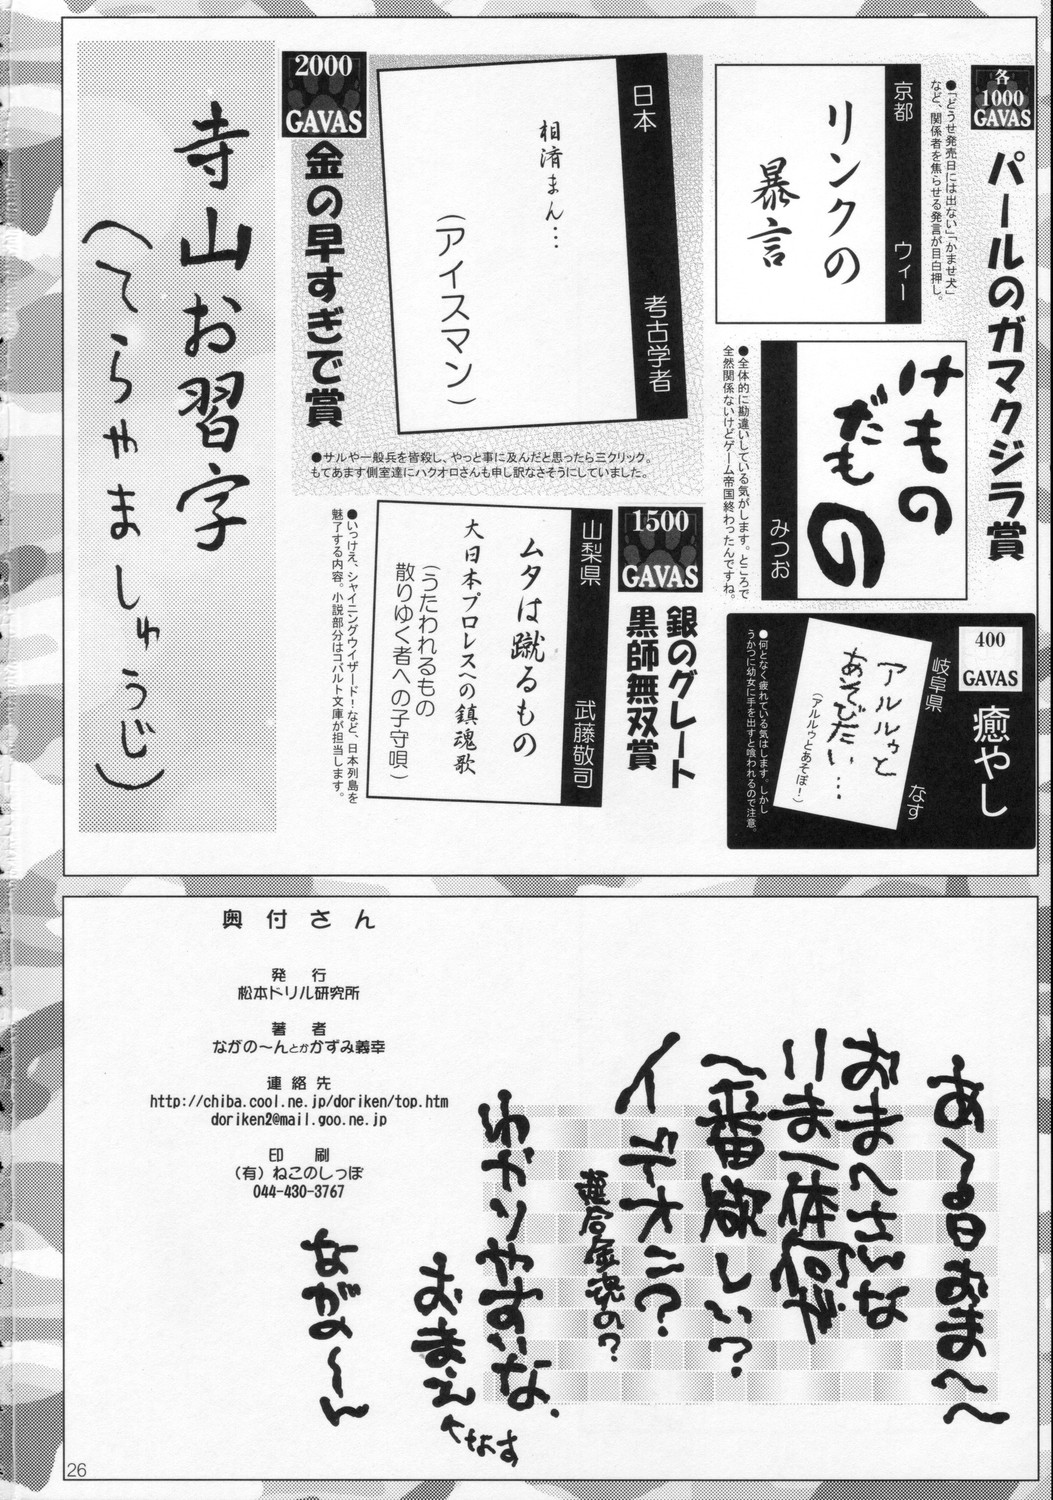 各
1000
GAVAS
パールのガマクジラ賞
京都
ウィー
リンクの
暴言
●「どうせ発売日には出ない」「かませ犬」
など、関係者を焦らせる発言が目白押し。
けもの
だもの
みつお
●全体的に勘違いしている気がします。ところで
全然関係ないけどゲーム帝国終わったんですね。
400
GAVAS
癒やし
岐阜県
なす
アルルゥと
あそびたい…
(アルルゥとあそぼ!)
●何となく疲れている気はします。しかし
うかつに幼女に手を出すと喰われるので注意。
2000
GAVAS
金の早すぎで賞
日本
考古学者
相済まん…
(アイスマン)
●サルや一般兵を皆殺し、やっと事に及んだと思ったら三クリック。
もてあます側室達にハクオロさんも申し訳なさそうにしていました。
1500
GAVAS
銀のグレート
黒師無双賞
山梨県
武藤敬司
ムタは蹴るもの
大日本プロレスへの鎮魂歌
(うたわれるもの
散りゆく者への子守唄)
●いっけえ、シャイニングウィザード!など、日本列島を
魅了する内容。小説部分はコバルト文庫が担当します。
寺山お習字
(てらやましゅうじ)
奥付さん
発行
松本ドリル研究所
著者
ながの〜んとかかずみ義幸
連絡先
http://chiba.cool.ne.jp/doriken/top.htm
doriken2@mail.goo.ne.jp
印刷
(有)ねこのしっぽ
044-430-3767
ある日おま〜〜
おまへさんな
いま一体何が
一番欲しい?
イデオン?
超合金魂の?
わかりやすいな、
おまえ
へなす
ながの〜ん
26